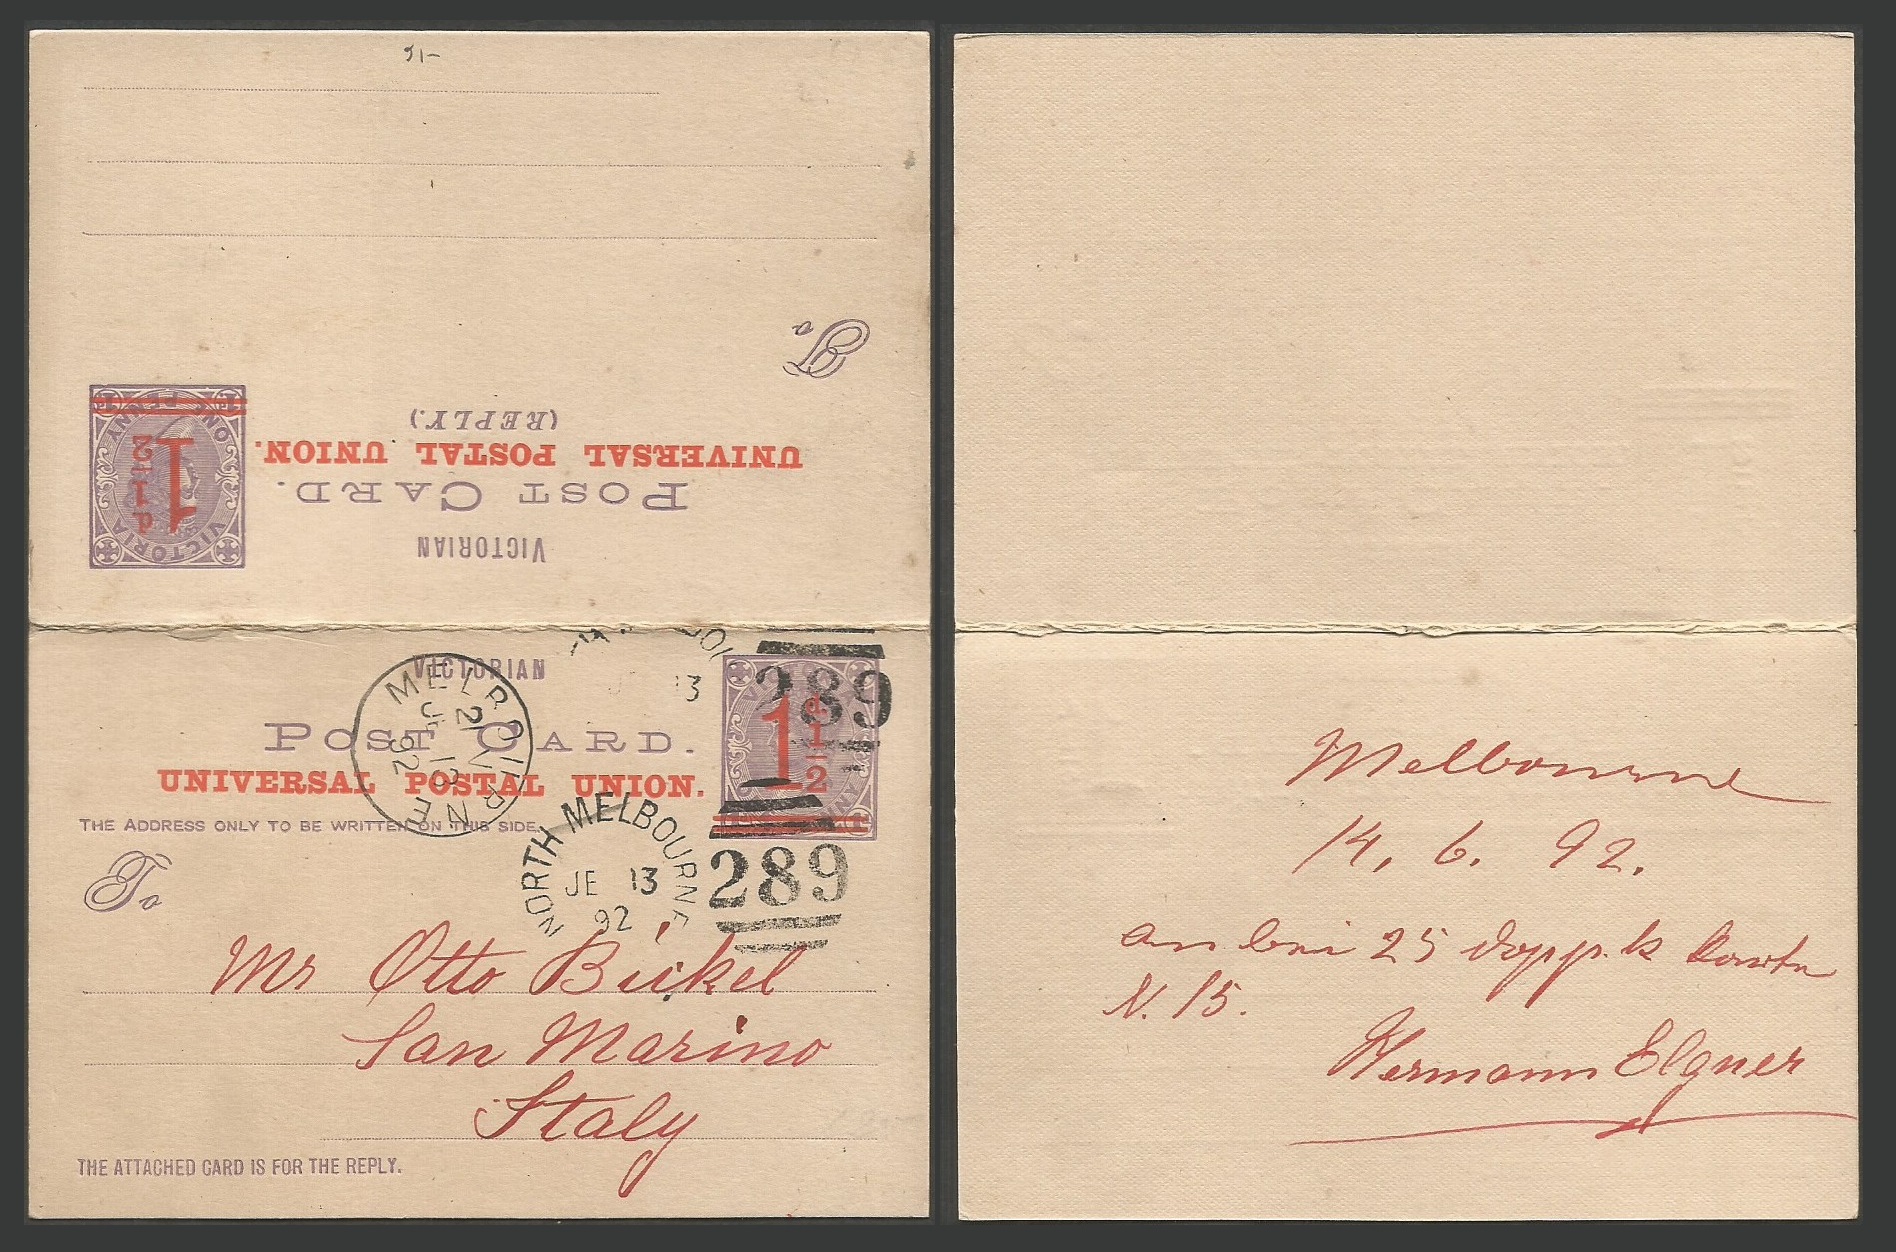 51-
To
(REPLY.)
UNIVERSAL POSTAL UNION.
POST CARD.
VICTORIAN
VICTORIA
ONE PENNY
1½d
VICTORIAN
POST CARD.
UNIVERSAL POSTAL UNION.
THE ADDRESS ONLY TO BE WRITTEN ON THIS SIDE.
To
1½d
MELBOURNE
2N
JE 13
92
13
289
NORTH MELBOURNE
JE 13
92
289
Mr Otto Bickel
San Marino
Italy
THE ATTACHED CARD IS FOR THE REPLY.
Melbourne
14. 6. 92.
anbei 25 Doppk Karten
N. 15.
Hermann Elgner